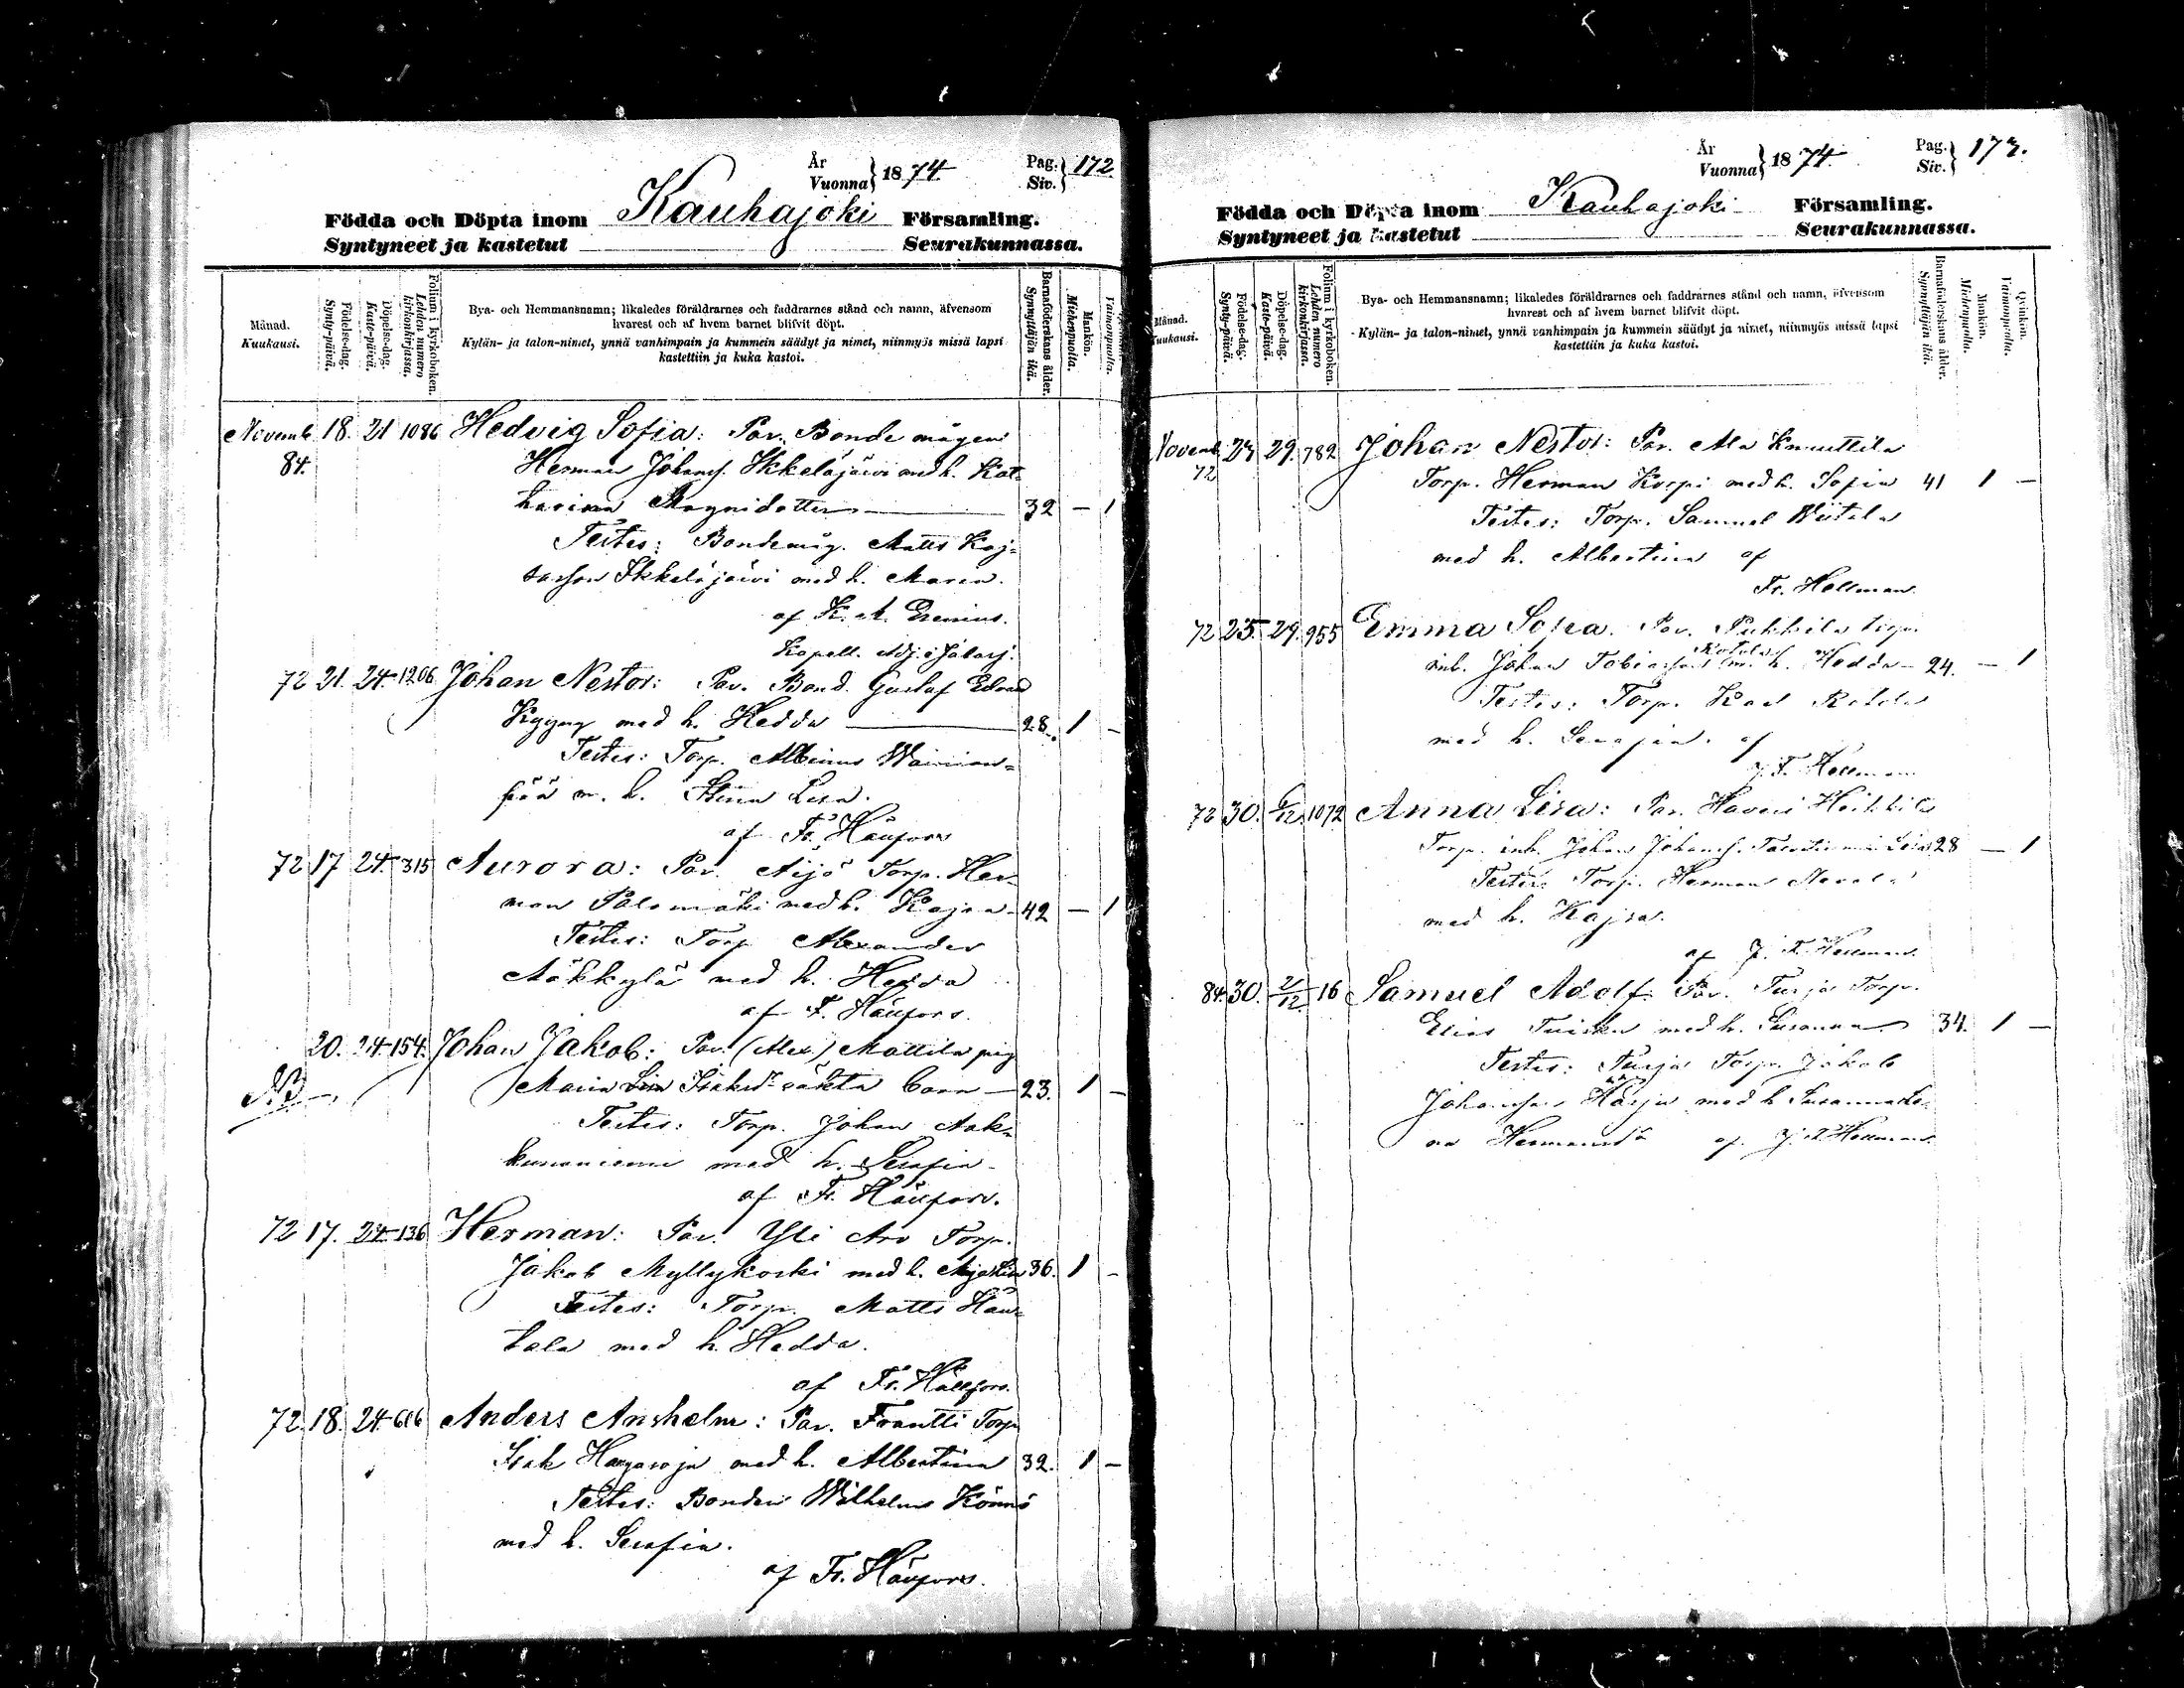 År
Vuonna } 1874 Pag.
Siv. } 172
Födda och Döpta inom Kauhajoki Församling.
Syntyneet ja kastetut Seurakunnassa.
Månad.
Kuukausi.
Födelse-dag.
Synty-päivä.
Döpelse-dag.
Kaste-päivä.
Folium i kyrkoboken.
Lehden numero kirkonkirjassa.
Bya- och Hemmansnamn; likaledes föräldrarnes och faddrarnes stånd och namn, äfvensom
hvarest och af hvem barnet blifvit döpt.
Kylän- ja talon-nimet, ynnä vanhimpain ja kummein säädyt ja nimet, niinmyös missä lapsi
kastettiin ja kuka kastoi.
Barnaföderskans ålder.
Synnyttäjän ikä.
Mankön.
Miehenpuolta.
Vaimonpuolta.
Novemb 18. 21 1086 Hedvig Sofia: Par. Bonde mågen
84. Herman Johans. Ikkeläjärvi med h. Kat-
harina 32 - 1
Testes: Bondemåg. Matts Kaj-
Ikkeläjärvi med h. Maria.
af K. A.
Kapell. Adj. i Jalasj.
72 21. 24. 1206 Johan Nestor: Par. Bond. Gustaf Edvard
med h. Hedda 28. 1 -
Testes: Torp. Albinus Wainion-
pää m. h. Stina Lisa.
af Fr. Hällfors
72 17 24. 315 Aurora: Par. Äijö Torp. Her-
man Palomäki med h. Kajsa 42 - 1
Testes: Torp Alexander
med h. Hedda
af F. Hällfors.
20. 24. 154. Johan Jakob: Par. (Alex) Mattila pig
NB Maria Lisa Isaksdr oäkta barn 23. 1 -
Testes: Torp. Johan
med h. Serafia
af Fr. Hällfors.
72 17. 24. 136 Herman: Par. Yli Aro Torp.
Jakob Myllykoski med h. Maja Lisa 36. 1 -
Testes: Torp. Matts Hau-
tala med h. Hedda.
af Fr. Hällfors.
72. 18. 24. 616 Anders Anshelm: Par. Frantti Torp
Isak med h. Albertina 32. 1 -
Testes: Bonden Wilhelm Könnö
med h. Serafia.
af Fr. Hällfors.
År
Vuonna } 1874 Pag.
Siv. } 173.
Födda och Döpta inom Kauhajoki Församling.
Syntyneet ja kastetut Seurakunnassa.
Månad.
Kuukausi.
Födelse-dag.
Synty-päivä.
Döpelse-dag.
Kaste-päivä.
Folium i kyrkoboken.
Lehden numero kirkonkirjassa.
Bya- och Hemmansnamn; likaledes föräldrarnes och faddrarnes stånd och namn, äfvensom
hvarest och af hvem barnet blifvit döpt.
Kylän- ja talon-nimet, ynnä vanhimpain ja kummein säädyt ja nimet, niinmyös missä lapsi
kastettiin ja kuka kastoi.
Barnaföderskans ålder.
Synnyttäjän ikä.
Mankön.
Miehenpuolta.
Qvinkön.
Vaimonpuolta.
Novemb. 29. 782 Johan Nestor: Par. Ala Knuuttila
72 Torp. Herman Korpi med h. Sofia 41 1 -
Testes: Torp. Samuel
med h. Albertina af
Fr. Hellman.
72 25. 29. 955 Emma Sofia. Par. Pukkila torp.
inh. Johan Tobiasson m. h. Hedda 24. - 1
Testes: Torp.
med h. Serafia. af
J. F. Hellman
72 30. 6/12 1072 Anna Lisa: Par. Haveri Heikkilä
Torp. inh. Johan Johans. Lisa 28 - 1
Testes Torp. Herman
med h. Kajsa.
af J. F. Hellman.
84. 30. 21/12. 16 Samuel Adolf: Par. Turja Torp.
Elias med h. Susanna 34. 1 -
Testes: Turja Torp. Jakob
Johansson Harju med h Susanna Le-
na af J. F. Hellman.